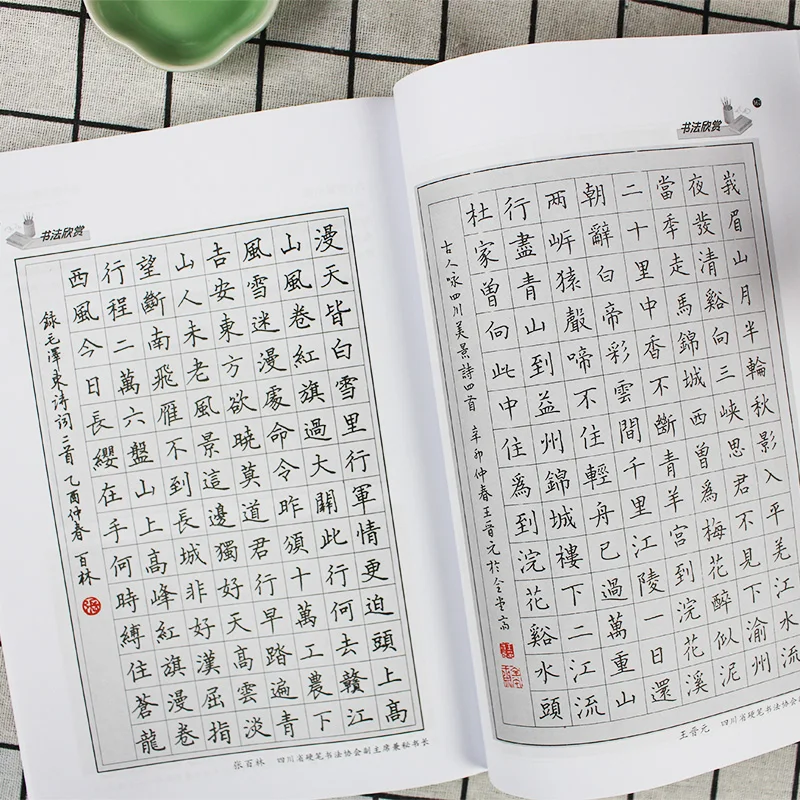 书法欣赏
漫天皆白雪里行軍情更迫頭上高
山風卷紅旗過大關此行何去贛江
風雪迷漫處命令昨頒十萬工農下
吉安東方欲曉莫道君行早踏遍青
山人未老風景這邊獨好天高雲淡
望斷南飛雁不到長城非好漢屈指
行程二萬六盤山上高峰紅旗漫卷
西風今日長纓在手何時縛住蒼龍
錄毛澤東诗词三首 乙酉仲春 百林
张百林 四川省硬笔书法协会副主席兼秘书长
书法欣赏
峩眉山月半輪秋影入平羌江水流
夜發清谿向三峽思君不見下渝州
當季走馬錦城西曾爲梅花醉似泥
二十里中香不斷青羊宮到浣花溪
朝辭白帝彩雲間千里江陵一日還
两岸猿聲啼不住輕舟已過萬重山
行盡青山到益州錦城樓下二江流
杜家曾向此中住爲到浣花谿水頭
古人咏四川美景詩四首 辛卯仲春王晉元於
王晋元 四川省硬笔书法协会副